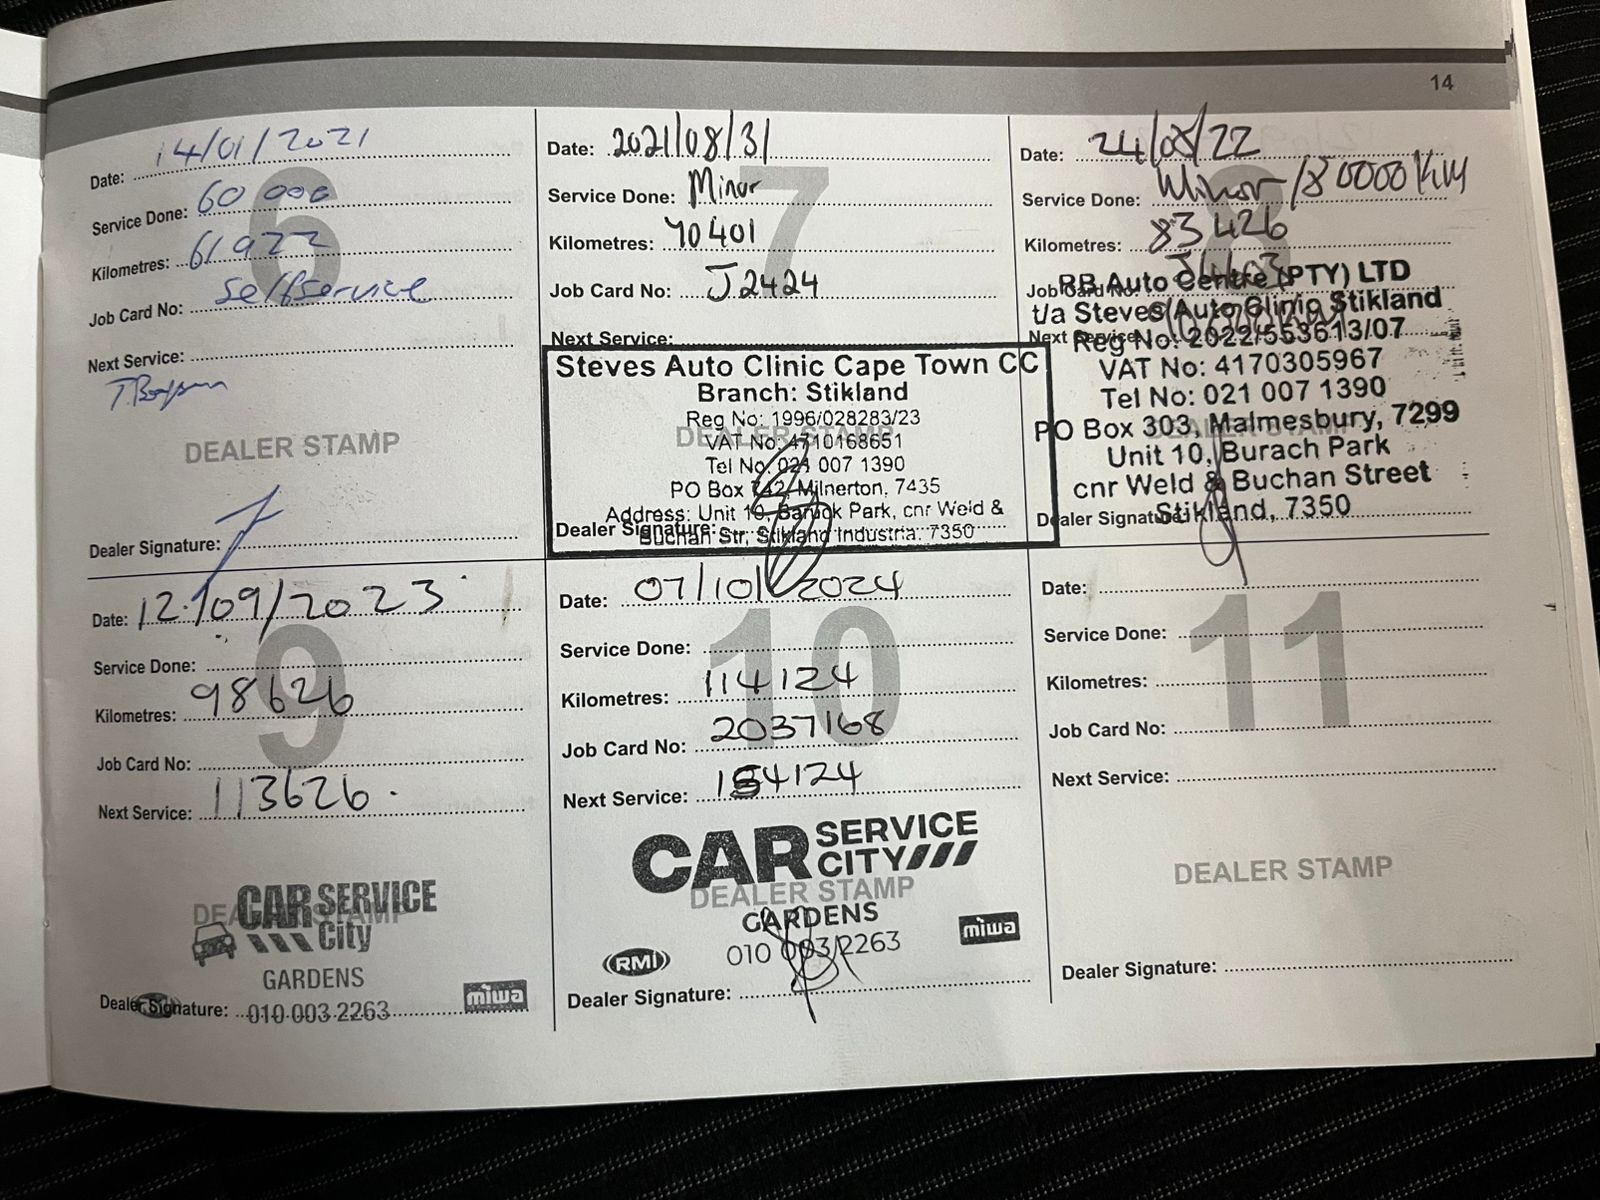 14
Date: 14/01/2021
Service Done: 60 000
Kilometres: 61922
Job Card No: Selfservice
Next Service:
6
DEALER STAMP
Dealer Signature:
Date: 2021/08/31
Service Done: Minor
Kilometres: 70401
Job Card No: J2424
Next Service:
7
Steves Auto Clinic Cape Town CC
Branch: Stikland
Reg No: 1996/028283/23
VAT No: 4710168651
Tel No: 021 007 1390
PO Box 742, Milnerton, 7435
Address: Unit 10, Baruck Park, cnr Weld &
Buchan Str, Stikland Industria. 7350
DEALER STAMP
Dealer Signature:
Date: 24/05/22
Service Done: Minor/80000KM
Kilometres: 83426
Job Card No:
Next Service:
8
RB Auto Centre (PTY) LTD
t/a Steves Auto Clinic Stikland
Reg No: 2022/553613/07
VAT No: 4170305967
Tel No: 021 007 1390
PO Box 303, Malmesbury, 7299
Unit 10, Burach Park
cnr Weld & Buchan Street
Stikland, 7350
Dealer Signature:
Date: 12/09/2023
Service Done:
Kilometres: 98626
Job Card No:
Next Service: 113626
9
DEALER STAMP
CAR SERVICE
City
GARDENS
010 003 2263
miwa
Dealer Signature:
Date: 07/10/2024
Service Done:
Kilometres: 114124
Job Card No: 2037168
Next Service: 154124
10
CAR SERVICE
CITY
DEALER STAMP
GARDENS
010 003 2263
RMI
miwa
Dealer Signature:
Date:
Service Done:
Kilometres:
Job Card No:
Next Service:
11
DEALER STAMP
Dealer Signature: